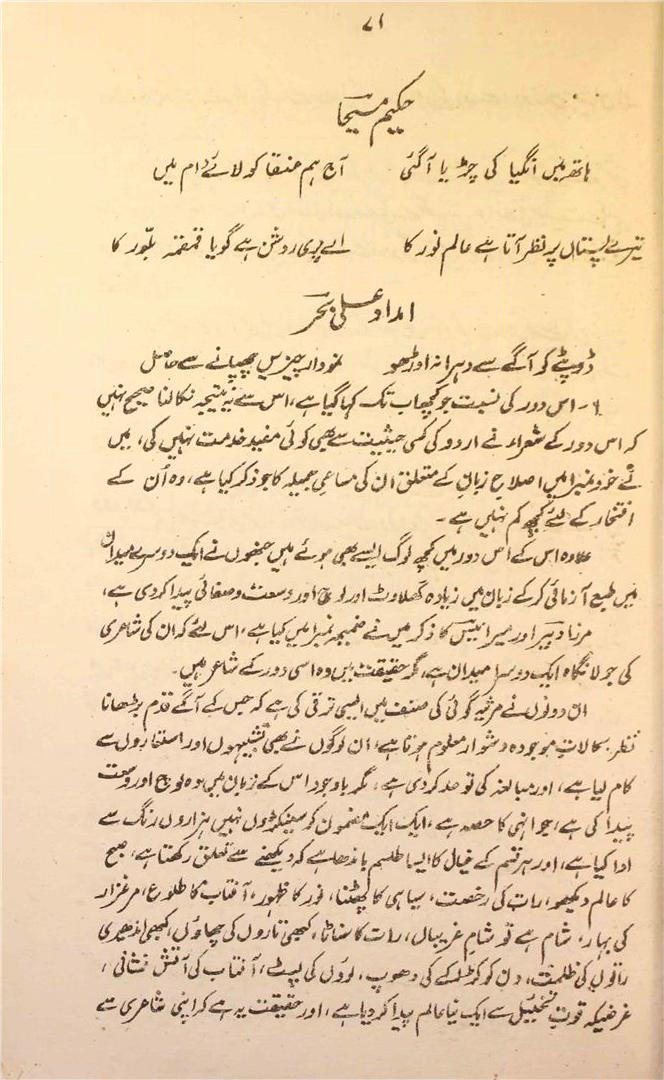 ۷۱
حکیم مسیحا
ہاتھ میں انگیا کی چڑیا آگئی آج ہم عنقا کو لائے دام میں
تیرے پستاں پر نظر آتا ہے عالم نور کا اے پری روشن ہے گویا قمقمہ بلّور کا
امداد علی بحر
ڈوپٹے کو آگے سے دہرا نہ اوڑھو نمودار چیزیں چھپانے سے حاصل
۶۔ اس دور کی نسبت جو کچھ اب تک کہا گیا ہے، اس سے یہ نتیجہ نکالنا صحیح نہیں
کہ اس دور کے شعراء نے اردو کی کسی حیثیت سے بھی کوئی مفید خدمت نہیں کی، میں
نے خود نمبر ا میں اصلاح زبان کے متعلق ان کی مساعی جمیلہ کا جو ذکر کیا ہے، وہ اُن کے
افتخار کے لئے کچھ کم نہیں ہے۔
علاوہ اس کے اس دور میں کچھ لوگ ایسے بھی ہوئے ہیں جنھوں نے ایک دوسرے میدان
میں طبع آزمائی کر کے زبان میں زیادہ گھلاوٹ اور لوچ اور وسعت و صفائی پیدا کر دی ہے،
مرزا دبیر اور میر انیس کا ذکر میں نے ضمیمہ نمبر ا میں کیا ہے، اس لئے کہ ان کی شاعری
کی جولانگاہ ایک دوسرا میدان ہے، مگر حقیقت میں وہ اسی دور کے شاعر ہیں۔
ان دونوں نے مرثیہ گوئی کی صنف میں ایسی ترقی کی ہے کہ جس کے آگے قدم بڑھانا
نظر بحالاتِ موجودہ دشوار معلوم ہوتا ہے، ان لوگوں نے بھی تشبیہوں اور استعاروں سے
کام لیا ہے، اور مبالغہ کی تو حد کر دی ہے، مگر باوجود اس کے زبان میں وہ لوچ اور وسعت
پیدا کی ہے، جو انہی کا حصہ ہے، ایک ایک مضمون کو سینکڑوں نہیں ہزاروں رنگ سے
ادا کیا ہے، اور ہر قسم کے خیال کا ایسا طلسم باندھا ہے کہ دیکھنے سے تعلق رکھتا ہے، صبح
کا عالم دیکھو، رات کی رخصت، سیاہی کا پھٹنا، نور کا ظہور، آفتاب کا طلوع، مرغزار
کی بہار، شام ہے تو شامِ غریباں، رات کا سناٹا، کبھی تاروں کی چھاؤں، کبھی اندھیری
راتوں کی ظلمت، دن کو کڑاکے کی دھوپ، لوؤں کی لپٹ، آفتاب کی آتش فشانی،
غرضیکہ قوتِ تخئیل سے ایک نیا عالم پیدا کر دیا ہے، اور حقیقت یہ ہے کہ اپنی شاعری سے